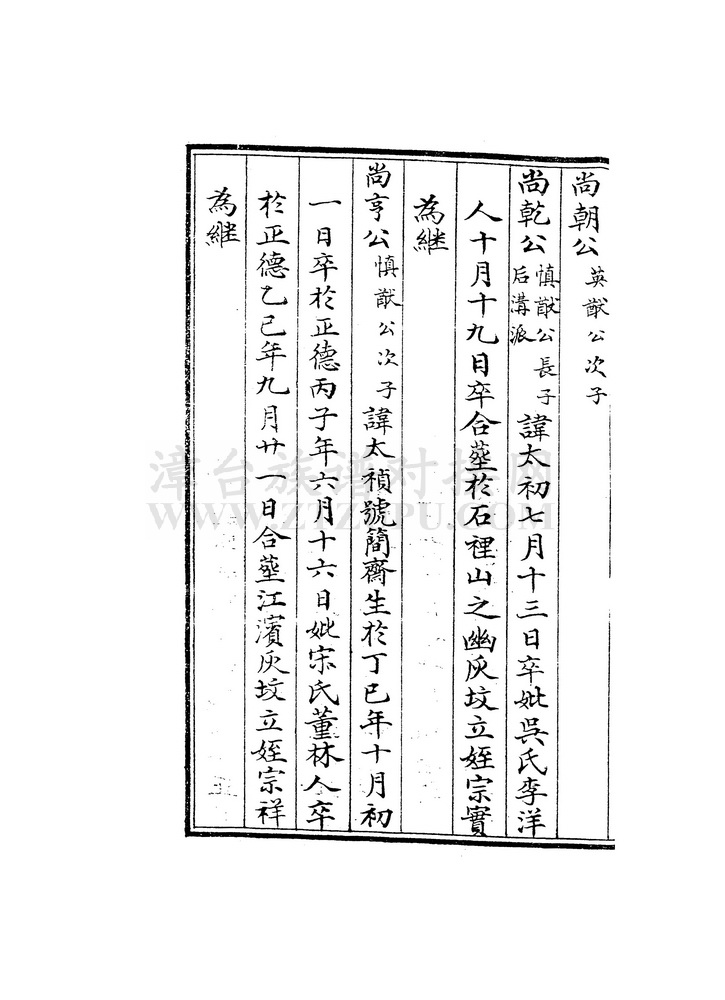 尚朝公 英猷公次子
尚乾公 慎猷公長子 后溝派 諱太初七月十三日卒妣吳氏李洋
人十月十九日卒合塟於石裡山之幽灰坟立姪宗實
為継
尚亨公 慎猷公次子 諱太禎號簡齋生於丁巳年十月初
一日卒於正德丙子年六月十六日妣宋氏董林人卒
於正德乙巳年九月廿一日合塟江濱灰坟立姪宗祥
為継
漳台族谱对接网